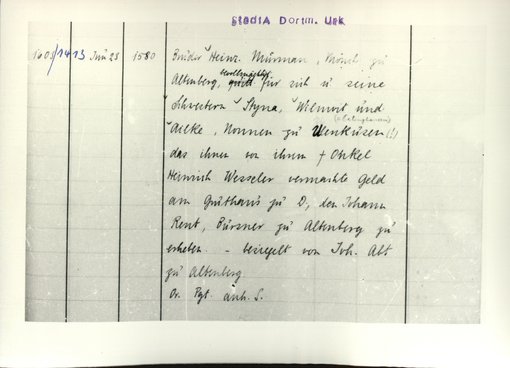 StadtA Dortm. Urk
1608/1413 Juni 28 1580 Bruder Heinr. Mürman, Mönch zu
Altenberg, bevollmächtigt für sich u seine
Schwestern Styna, Wilmort und
Aelke, Nonnen zu Wenkusen (!)
das ihnen von ihrem † Onkel
Heinrich Wesseler vermachte Geld
am Gasthaus zu D, den Johann
Rent, Bursner zu Altenberg zu
erheben. - besiegelt von Joh. Abt
zu Altenberg
Or. Pgt. anh. S.